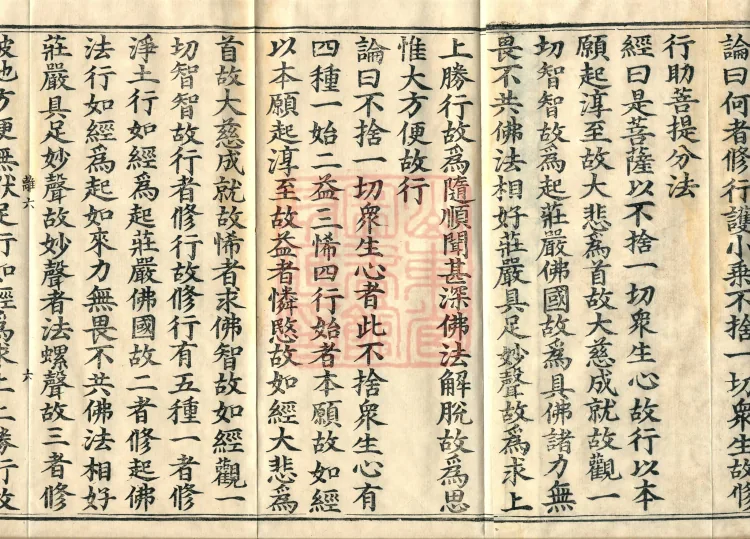 論曰何者修行護小乘不捨一切衆生故修
行助菩提分法
經曰是菩薩以不捨一切衆生心故行以本
願起淳至故大悲爲首故大慈成就故觀一
切智智故爲起莊嚴佛國故爲具佛諸力無
畏不共佛法相好莊嚴具足妙聲故爲求上
上勝行故爲隨順聞甚深佛法解脫故爲思
惟大方便故行
論曰不捨一切衆生心者此不捨衆生心有
四種一始二益三悕四行始者本願故如經
以本願起淳至故益者憐愍故如經大悲爲
首故大慈成就故悕者求佛智故如經觀一
切智智故行者修行故修行有五種一者修
淨土行如經爲起莊嚴佛國故二者修起佛
法行如經爲起如來力無畏不共佛法相好
莊嚴具足妙聲故妙聲者法螺聲故三者修
彼地方便無猒足行如經爲求上上勝行故
離六
六